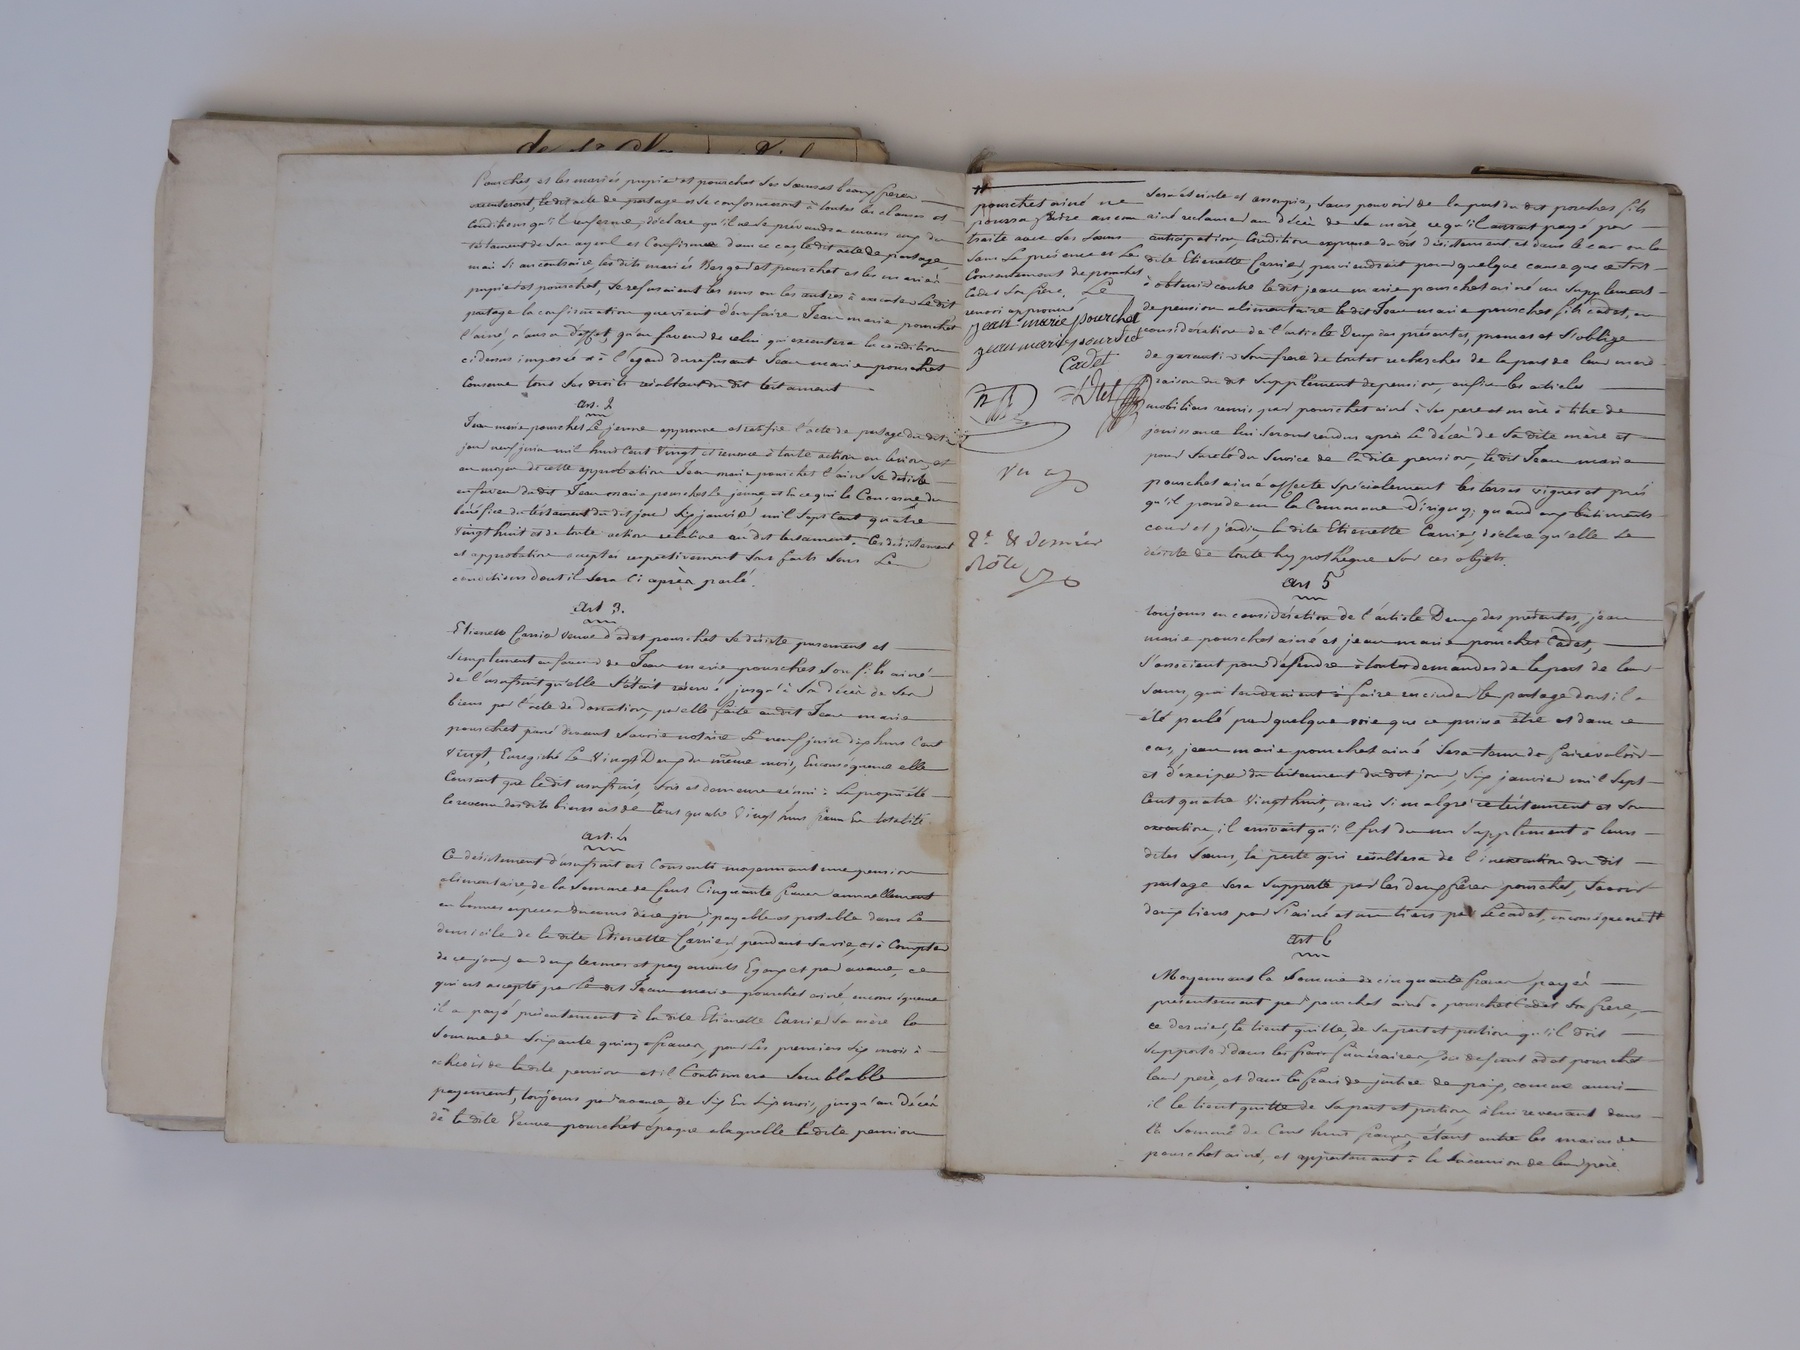 Pourchet, et les mariés pupier et pourchet ses sœurs et beaux freres
executeront, le dit acte de partage et se conformeront à toutes les clauses et
Conditions qu'il renferme, déclare qu'il ne se prévaudra en aucun cas du
testament de son ayeul et Confirme dans ce cas, le dit acte de partage
mais si au contraire, les dits mariés Berger et pourchet et les mariés
pupier et pourchet, se refusaient les uns ou les autres à executer le dit
partage la confirmation que vient d'en faire Jean marie pourchet
l'ainé, n'aura d'effet, qu'en faveur de celui qui executera la condition
ci dessus imposée et à l'egard du refusant Jean marie pourchet
Conserve tous ses droits résultant du dit testament
art. 2
Jean marie pourchet Le jeune approuve et ratifie l'acte de partage du dit
jour neuf juin mil huit Cent Vingt et renonce à toute action en lesion, et
au moyen de cette approbation Jean marie pourchet l'ainé se désiste
en faveur du dit Jean marie pourchet Le jeune, et en ce qui le Concerne du
bénéfice du testament du dit jour Six janvier mil Sept Cent quatre
Vingt huit et de toute action relative au dit testament. Ces désistement
et approbation acceptés respectivement Sont faits Sous Les
conditions dont il Sera Ci après parlé.
art 3.
Etienette Carrier Veuve d'odet pourchet Se désiste purement et
Simplement en faveur de Jean marie pourchet Son fils ainé
de l'usufruit qu'elle S'était réservé jusqu'à Son décès de Ses
biens par l'acte de donation, par elle faite audit Jean marie
pourchet passé devant notaire Le neuf juin dix huit Cent
Vingt, Enregistré Le Vingt Deux du même mois, En conséquence elle
Consent que le dit usufruit, Soit et demeure réuni à La propriété
le revenu des dits biens est de Cent quatre Vingt huit francs En totalité.
art. 4
Ce desistement d'usufruit est Consenti moyennant une pension
alimentaire, de la Somme de Cent Cinquante francs annuellement
en bonnes especes du cours de ce jour, payable et portable dans Le
domicile de la dite Etienette Carrier, pendant sa vie, et à Compter
de ce jour, en deux termes et payements Egaux et par avance, ce
qui est accepté par le dit Jean marie pourchet ainé, en conséquence
il a payé présentement à la dite Etienette Carrier Sa mère la
Somme de Soixante quinze francs, pour Les premiers Six mois à
echeoir de la dite pension et il Continuera Semblable
payement, toujours par avance, de Six En Six mois, jusqu'au Décès
de la dite Veuve pourchet époque à laquelle la dite pension
#
pourchet ainé ne
pourra faire aucun
traité avec ses sœurs
sans la présence et Le
Consentement de pourchet
Cadet Son frère. Le
renvoi approuvé
jean marie pourchet
jean marie pourchet
Cadet
2e & dernier
Rôle
sera éteinte et assoupie, sans pouvoir de la part du dit pourchet fils
ainé reclamer au décès de Sa mère, ce qu'il aurait payé par
anticipation, Condition expresse du dit désistement et dans le cas ou la
dite Etienette Carrier, parviendrait pour quelque cause que ce soit
à obtenir contre le dit jean marie pourchet ainé un Supplement
de pension alimentaire le dit Jean marie pourchet fils cadet, en
considération de l'article Deux des présentes, promet et S'oblige
de garantir Son frere de toutes recherches de la part de leur mere
à raison du dit Supplement de pension, enfin les articles
mobiliers remis par pourchet ainé à Ses pere et mère à titre de
jouissance lui Seront rendus après Le décès de Sa dite mère et
pour Sureté du Service de la dite pension, le dit Jean marie
pourchet ainé affecte Spécialement les terres vignes et prés
qu'il possede en la Commune D'irigny; quand aux bâtiments
cour et jardin, la dite Etienette Carrier, déclare qu'elle Se
désiste de toute hypothèque Sur ces objets.
art 5
toujours en considération de l'article Deux des présentes, jean
marie pourchet ainé et jean marie pourchet Cadet,
S'associent pour défendre à toutes demandes de la part de leurs
Sœurs, qui tendraient à faire rescinder le partage dont il a
été parlé par quelque voie que ce puisse être et dans ce
cas, jean marie pourchet ainé Sera tenu de faire valoir
et d'exciper du testament du dit jour, Six janvier mil Sept
Cent quatre Vingt huit, mais Si malgré ce testament et Son
execution, il arrivait qu'il fut du un Supplement à leurs
dites Sœurs, la perte qui resultera de l'inexécution du dit
partage Sera Supportée par les deux frères pourchet, Savoir
deux tiers par l'ainé et un tiers par Le cadet, en conséquence #
art 6
Moyennant la Somme de cinquante francs payés
présentement par pourchet ainé à pourchet Cadet Son frère,
ce dernier, le tient quitte, de Sa part et portion qu'il doit
Supporter dans les frais funéraires, du defunt odet pourchet
leur père, et dans les frais de justice de paix, comme aussi
il le tient quitte de Sa part et portion, à lui revenant dans
la Somme de Cent huit francs, étant entre les mains de
pourchet ainé, et appartenant à la Succession de leur père.